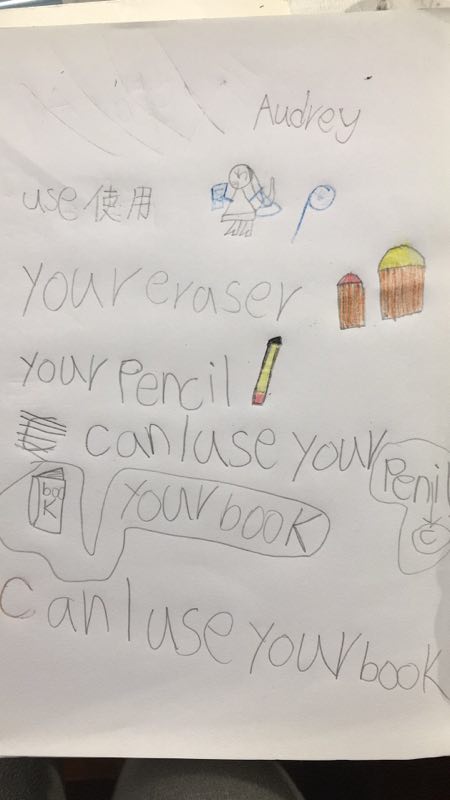 Audrey
use 使用
your eraser
your pencil
can I use your Penil
c
book
your book
can I use your book